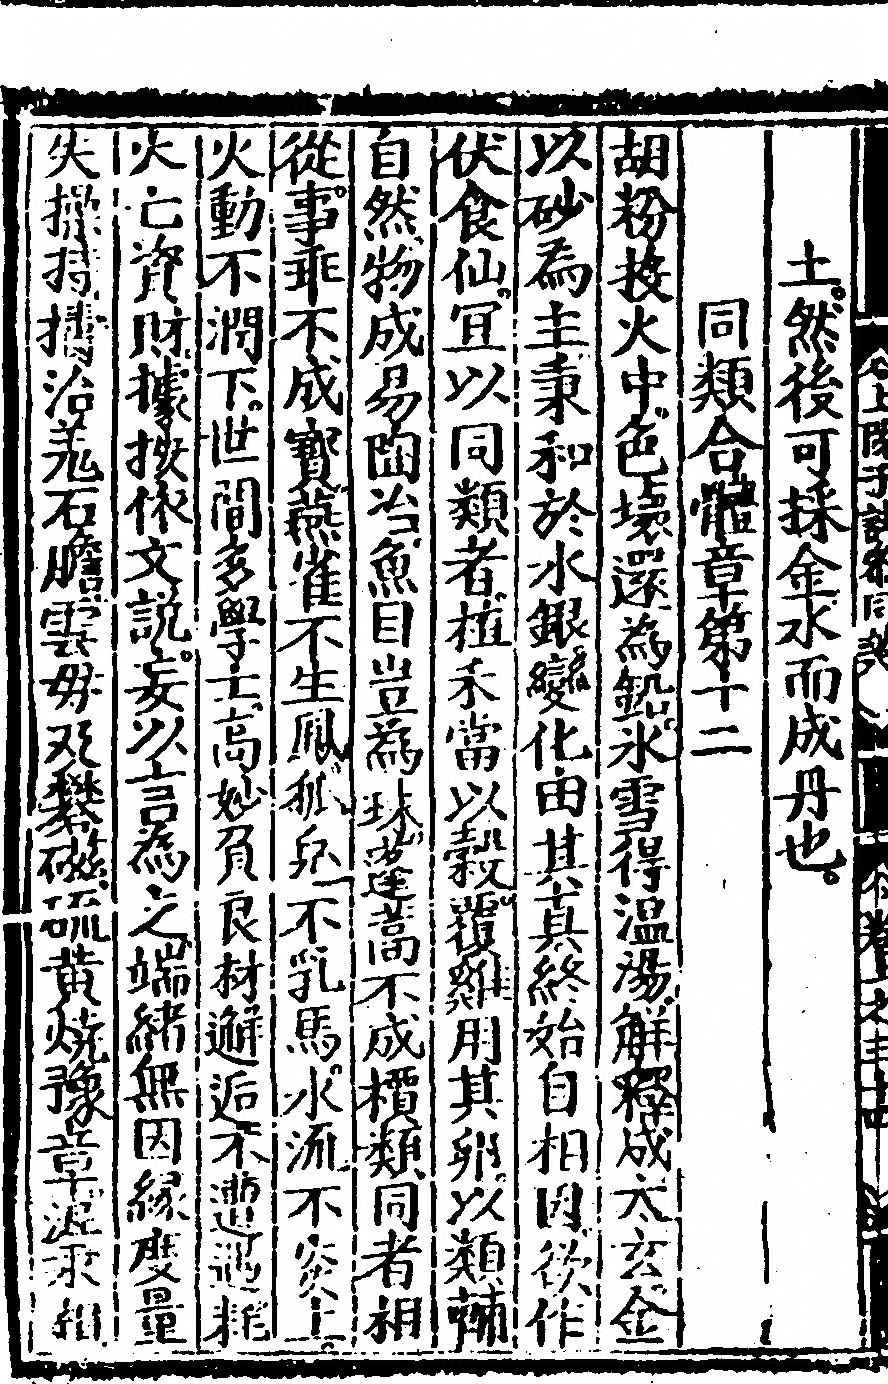 土然後可採金水而成丹也
同類合體章第十二
胡粉投火中色壞還為鉛氷雪得温湯解釋成太玄金
以砂為主秉和於水銀變化由其真終始自相因欲作
伏食仙冝以同類者植禾當以榖覆雞用其卵以類輔
自然物成易陶冶魚目豈為珠蓬蒿不成檟類同者相
從事乖不成寳燕雀不生鳳狐兎不乳馬水流不炎上
火動不潤下世間多學士高妙負良材邂逅不遭遇耗
火亡資財據按依文説妄以言為之端緒無因縁度量
失操持擣治羗石膽雲母及礬磁硫黄燒豫章泥汞相